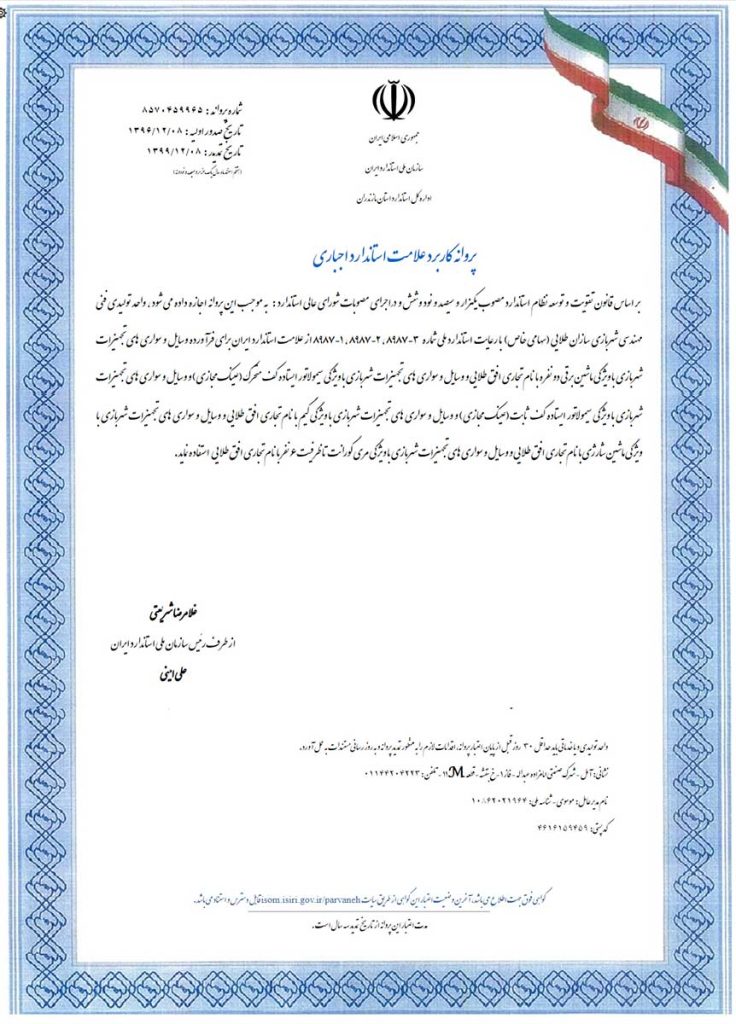 شماره پروانه : ۸۵۷۰۴۵۹۹۶۵
تاریخ صدور اولیه : ۱۳۹۶/۱۲/۰۸
تاریخ تمدید : ۱۳۹۹/۱۲/۰۸
جمهوری اسلامی ایران
سازمان ملی استاندارد ایران
اداره کل استاندارد استان مازندران
پروانه کاربرد علامت استاندارد اجباری
بر اساس قانون تقویت و توسعه نظام استاندارد مصوب یکهزار و سیصد و نود و شش و در اجرای مصوبات شورای عالی استاندارد : به موجب این پروانه اجازه داده می شود ، واحد تولیدی فنی
مهندسی شهربازی سازان طلایی (سهامی خاص) با رعایت استاندارد ملی شماره ۳-۸۹۸۷ ، ۲-۸۹۸۷ ، ۱-۸۹۸۷ از علامت استاندارد ایران برای فرآورده وسایل و سواری های تجهیزات
شهربازی با ویژگی ماشین برقی دو نفره با نام تجاری افق طلایی و وسایل و سواری های تجهیزات شهربازی با ویژگی سیمولاتور ایستاده کف متحرک (عینک مجازی) و وسایل و سواری های تجهیزات
شهربازی با ویژگی سیمولاتور ایستاده کف ثابت (عینک مجازی) و وسایل و سواری های تجهیزات شهربازی با ویژگی گیم با نام تجاری افق طلایی و وسایل و سواری های تجهیزات شهربازی با
ویژگی ماشین شارژی با نام تجاری افق طلایی و وسایل و سواری های تجهیزات شهربازی با ویژگی مری گورانت تا ظرفیت ۶ نفر با نام تجاری افق طلایی استفاده نماید.
غلامرضا شریعتی
از طرف رئیس سازمان ملی استاندارد ایران
علی امینی
واحد تولیدی و یا خدماتی باید حداقل ۳۰ روز قبل از پایان اعتبار پروانه، اقدامات لازم را به منظور تمدید پروانه و به روز رسانی مستندات به عمل آورد.
نشانی: آمل - شهرک صنعتی امامزاده عبداله - فاز ۱ - خ بنفشه - قطعه M۱۱ - تلفن: ۰۱۱۴۴۲۰۴۲۲۳
نام مدیر عامل: موسوی - شناسه ملی: ۱۰۸۶۲۰۲۱۹۶۴
کد پستی: ۴۶۱۶۱۵۹۴۵۹
گواهی فوق جهت اطلاع می باشد، آخرین وضعیت اعتبار این گواهی از طریق سایت isom.isiri.gov.ir/parvaneh قابل دسترس و استناد می باشد.
مدت اعتبار این پروانه از تاریخ تمدید سه سال است.